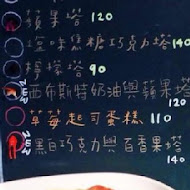 蘋果塔 120
鹽味焦糖巧克力塔 140
檸檬塔 90
西布斯特奶油與蘋果塔 120
草莓起司蛋糕 110
黑白巧克力與百香果塔 140